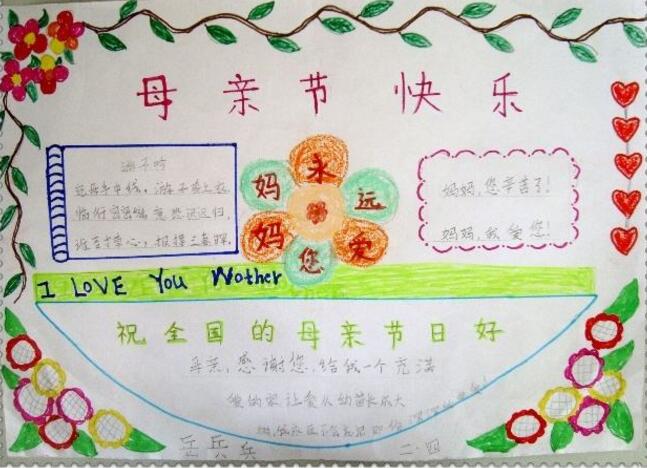 母亲节快乐
游子吟
慈母手中线，游子身上衣，
临行密密缝，意恐迟迟归，
谁言寸草心，报得三春晖。
永远爱您妈妈
妈妈，您辛苦了！
妈妈，我爱您！
I LOVE You Wother
祝全国的母亲节日好
母亲，感谢您，给我一个充满
爱的家让爱从幼苗长大
二·四